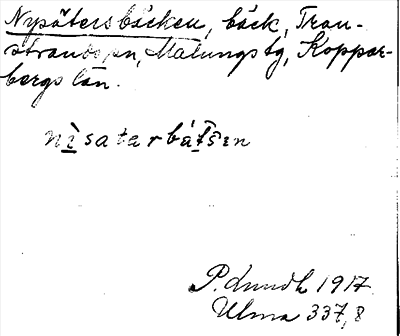 Nysätersbäcken, bäck, Tran-
strands sn, Malungs tg, Koppar-
bergs län.
nìsatarbátšen
P. Lundh 1917
Ulma 337,8